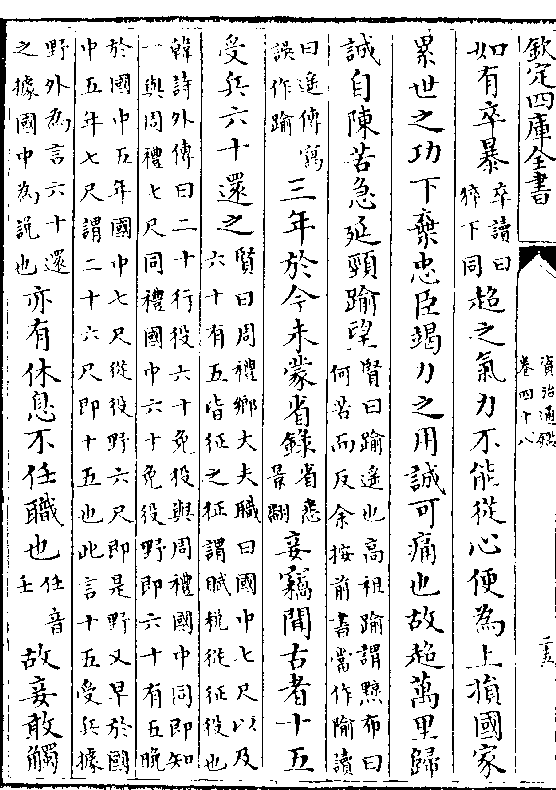 欽定四庫全書
資治通鑑
卷四十八
如有卒暴卒讀曰猝下同超之氣力不能從心便為上損國家
累世之功下棄忠臣竭力之用誠可痛也故超萬里歸
誠自陳苦急延頸踰望賢曰踰遙也高祖踰謂黥布曰何苦而反余按前書當作隃讀
曰遙傳寫誤作踰三年於今未蒙省錄省悉景翻妾竊聞古者十五
受兵六十還之賢曰周禮鄉大夫職曰國中七尺以及六十有五皆征之征謂賦稅從征役也
韓詩外傳曰二十行役六十免役與周禮國中同即知
一與周禮七尺同禮國中六十免役野即六十有五晚
於國中五年國中七尺從役野六尺即是野又早於國
中五年七尺謂二十六尺即十五也此言十五受兵據
野外為言六十還之據國中為說也亦有休息不任職也任音壬故妾敢觸